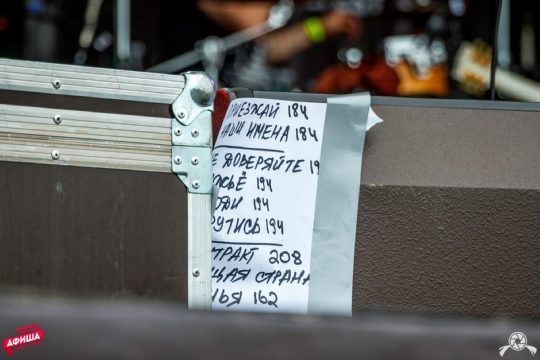 РИЕЗЖАЙ 184
ИМЕНА 184
Е ДОВЕРЯЙТЕ 19
ЖЬЁ 194
194
РУТИСЬ 194
ТРАКТ 208
ЩАЯ СТРАНА
ЬЯ 162
АФИША